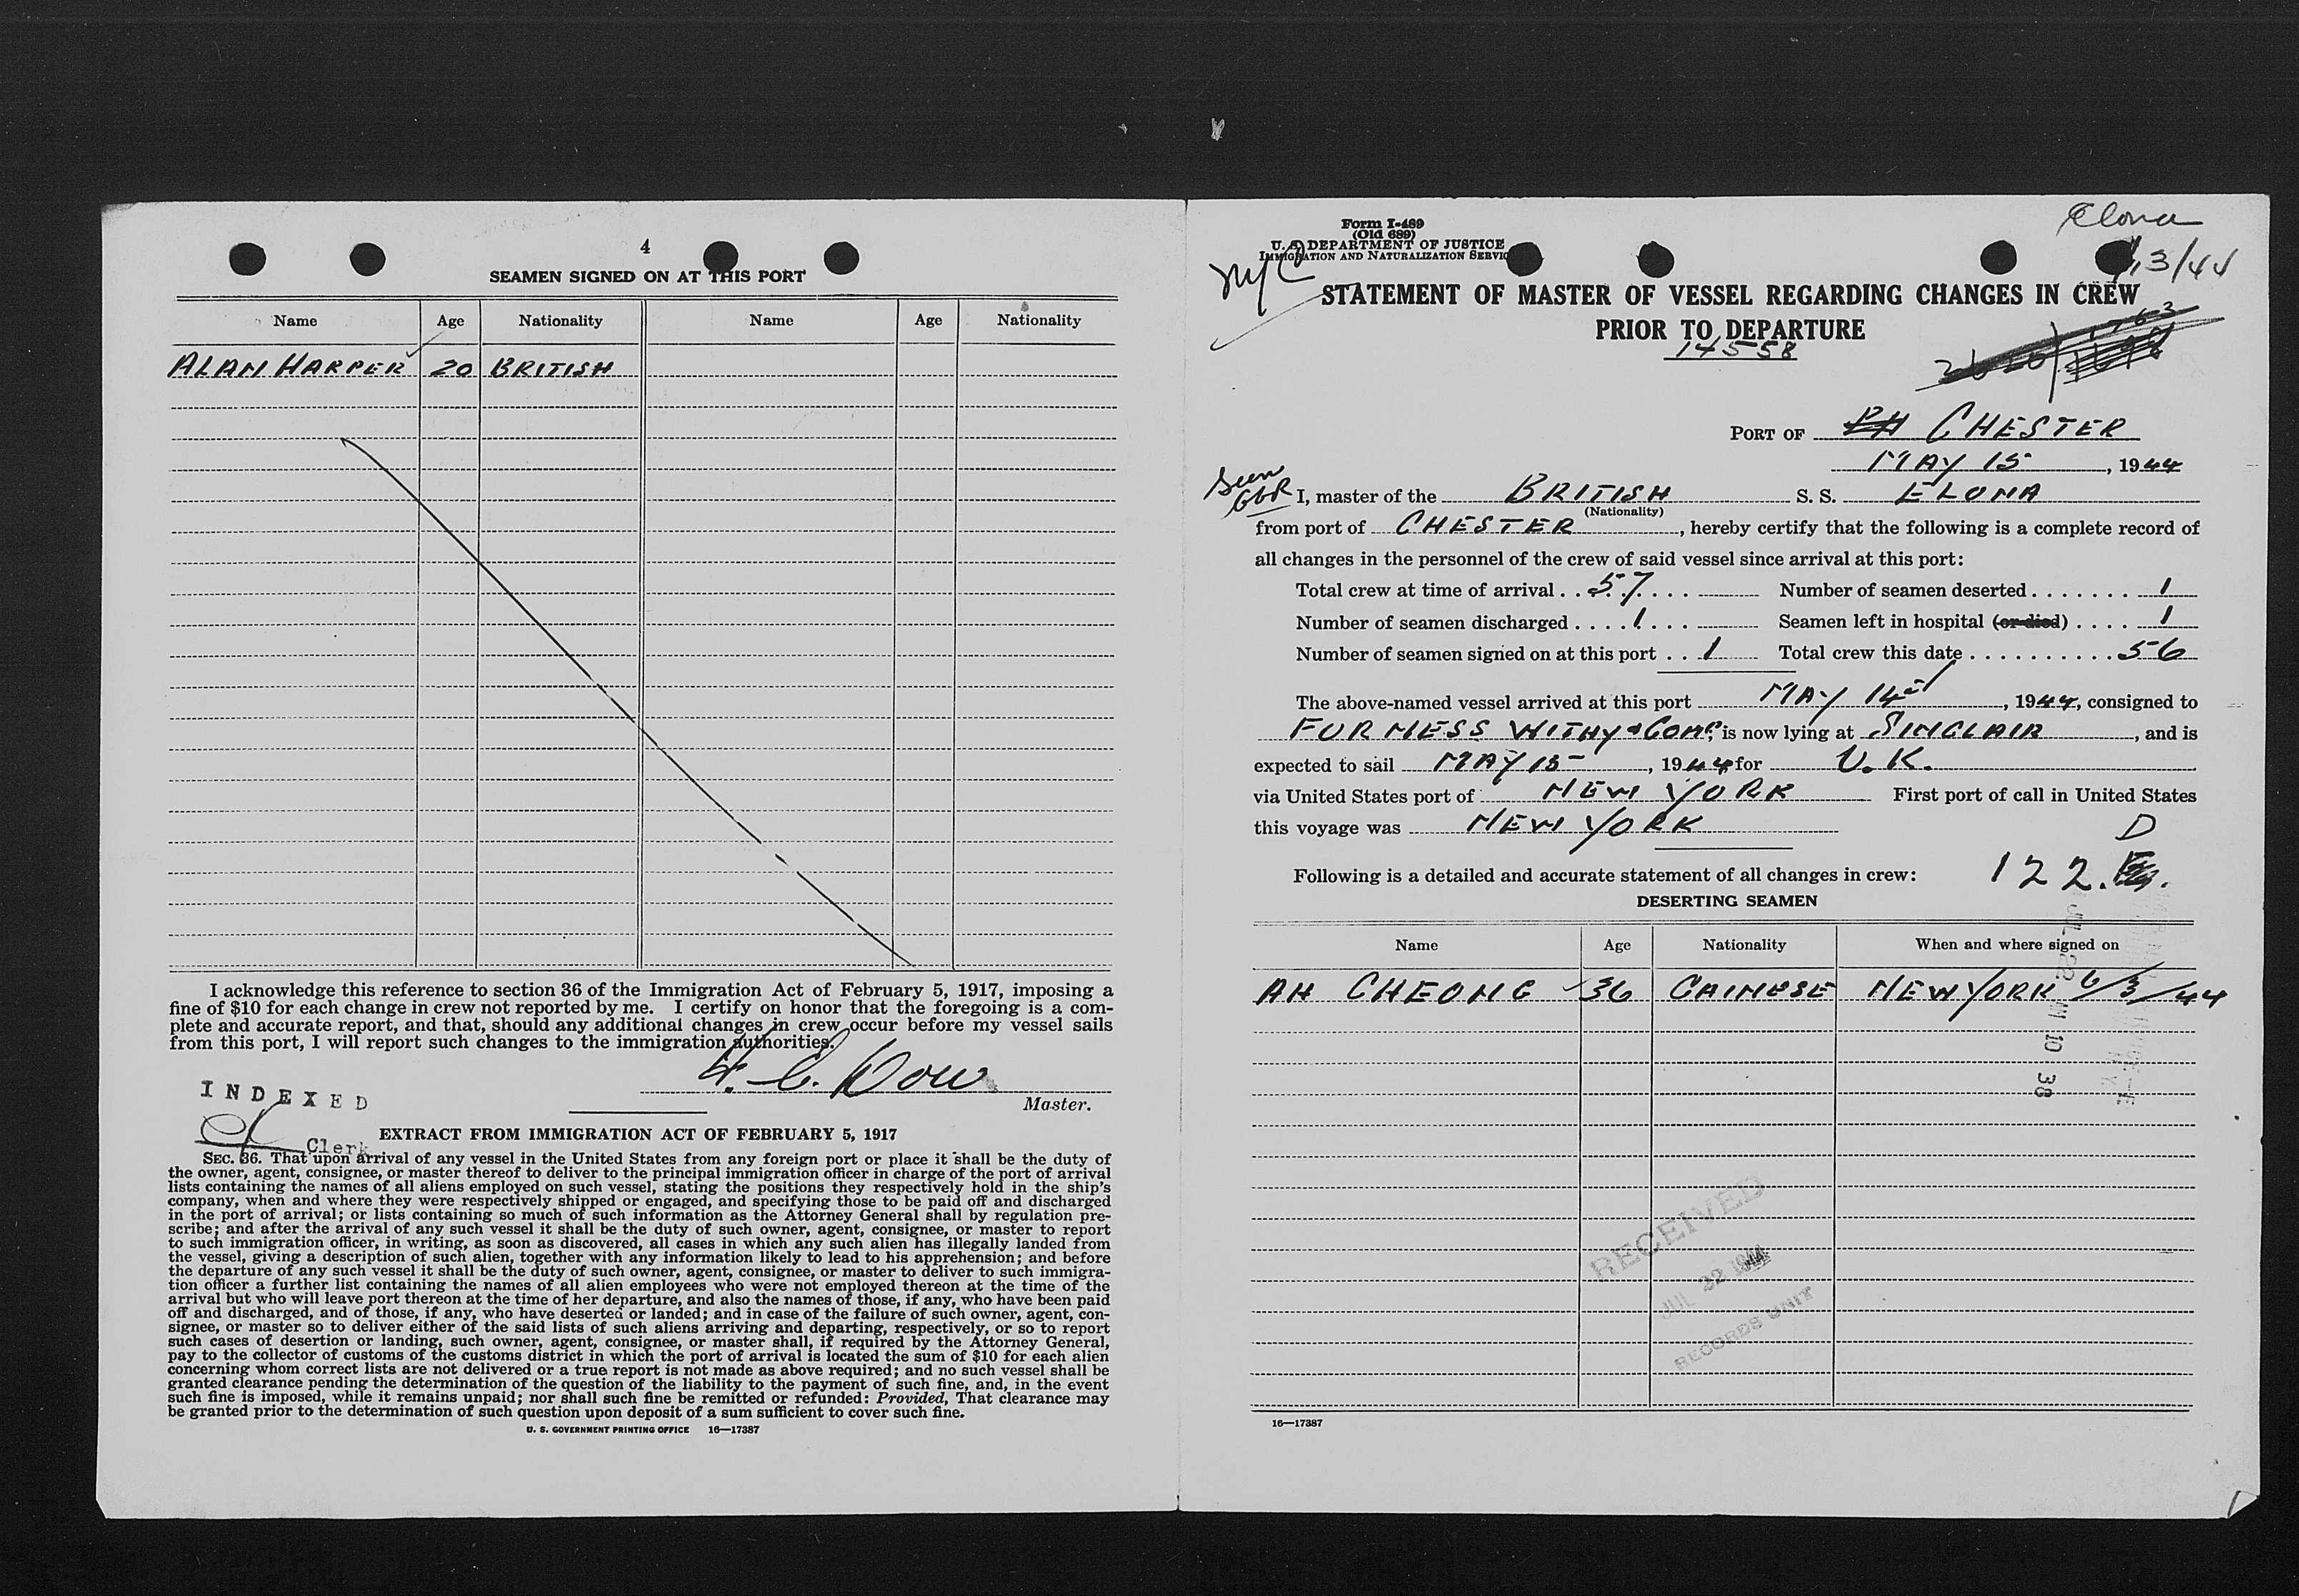 4
SEAMEN SIGNED ON AT THIS PORT
Name Age Nationality Name Age Nationality
ALAN HARPER 20 BRITISH
I acknowledge this reference to section 36 of the Immigration Act of February 5, 1917, imposing a
fine of $10 for each change in crew not reported by me. I certify on honor that the foregoing is a com-
plete and accurate report, and that, should any additional changes in crew occur before my vessel sails
from this port, I will report such changes to the immigration authorities.
Dow
Master.
INDEXED
Clerk
EXTRACT FROM IMMIGRATION ACT OF FEBRUARY 5, 1917
SEC. 36. That upon arrival of any vessel in the United States from any foreign port or place it shall be the duty of
the owner, agent, consignee, or master thereof to deliver to the principal immigration officer in charge of the port of arrival
lists containing the names of all aliens employed on such vessel, stating the positions they respectively hold in the ship's
company, when and where they were respectively shipped or engaged, and specifying those to be paid off and discharged
in the port of arrival; or lists containing so much of such information as the Attorney General shall by regulation pre-
scribe; and after the arrival of any such vessel it shall be the duty of such owner, agent, consignee, or master to report
to such immigration officer, in writing, as soon as discovered, all cases in which any such alien has illegally landed from
the vessel, giving a description of such alien, together with any information likely to lead to his apprehension; and before
the departure of any such vessel it shall be the duty of such owner, agent, consignee, or master to deliver to such immigra-
tion officer a further list containing the names of all alien employees who were not employed thereon at the time of the
arrival but who will leave port thereon at the time of her departure, and also the names of those, if any, who have been paid
off and discharged, and of those, if any, who have deserted or landed; and in case of the failure of such owner, agent, con-
signee, or master so to deliver either of the said lists of such aliens arriving and departing, respectively, or so to report
such cases of desertion or landing, such owner, agent, consignee, or master shall, if required by the Attorney General,
pay to the collector of customs of the customs district in which the port of arrival is located the sum of $10 for each alien
concerning whom correct lists are not delivered or a true report is not made as above required; and no such vessel shall be
granted clearance pending the determination of the question of the liability to the payment of such fine, and, in the event
such fine is imposed, while it remains unpaid; nor shall such fine be remitted or refunded: Provided, That clearance may
be granted prior to the determination of such question upon deposit of a sum sufficient to cover such fine.
U. S. GOVERNMENT PRINTING OFFICE 16—17387
Form I-489
(Old 689)
U. S. DEPARTMENT OF JUSTICE
IMMIGRATION AND NATURALIZATION SERVICE
Elona
13/44
NYC
STATEMENT OF MASTER OF VESSEL REGARDING CHANGES IN CREW
PRIOR TO DEPARTURE
14558
PORT OF CHESTER
MAY 15, 1944
Seen
I, master of the BRITISH S. S. ELONA
(Nationality)
from port of CHESTER, hereby certify that the following is a complete record of
all changes in the personnel of the crew of said vessel since arrival at this port:
Total crew at time of arrival 57 Number of seamen deserted 1
Number of seamen discharged 1 Seamen left in hospital (or died) 1
Number of seamen signed on at this port 1 Total crew this date 56
The above-named vessel arrived at this port MAY 14, 1944, consigned to
FURNESS WITHY & COMP, is now lying at SINCLAIR, and is
expected to sail MAY 15, 1944 for U.K.
via United States port of NEW YORK First port of call in United States
this voyage was NEW YORK
D
Following is a detailed and accurate statement of all changes in crew: 122.
DESERTING SEAMEN
Name Age Nationality When and where signed on
AH CHEONG 36 CHINESE NEW YORK 6/3/44
JUL 22 AM 10 38
RECEIVED
JUL 22 1944
RECORDS UNIT
16—17387